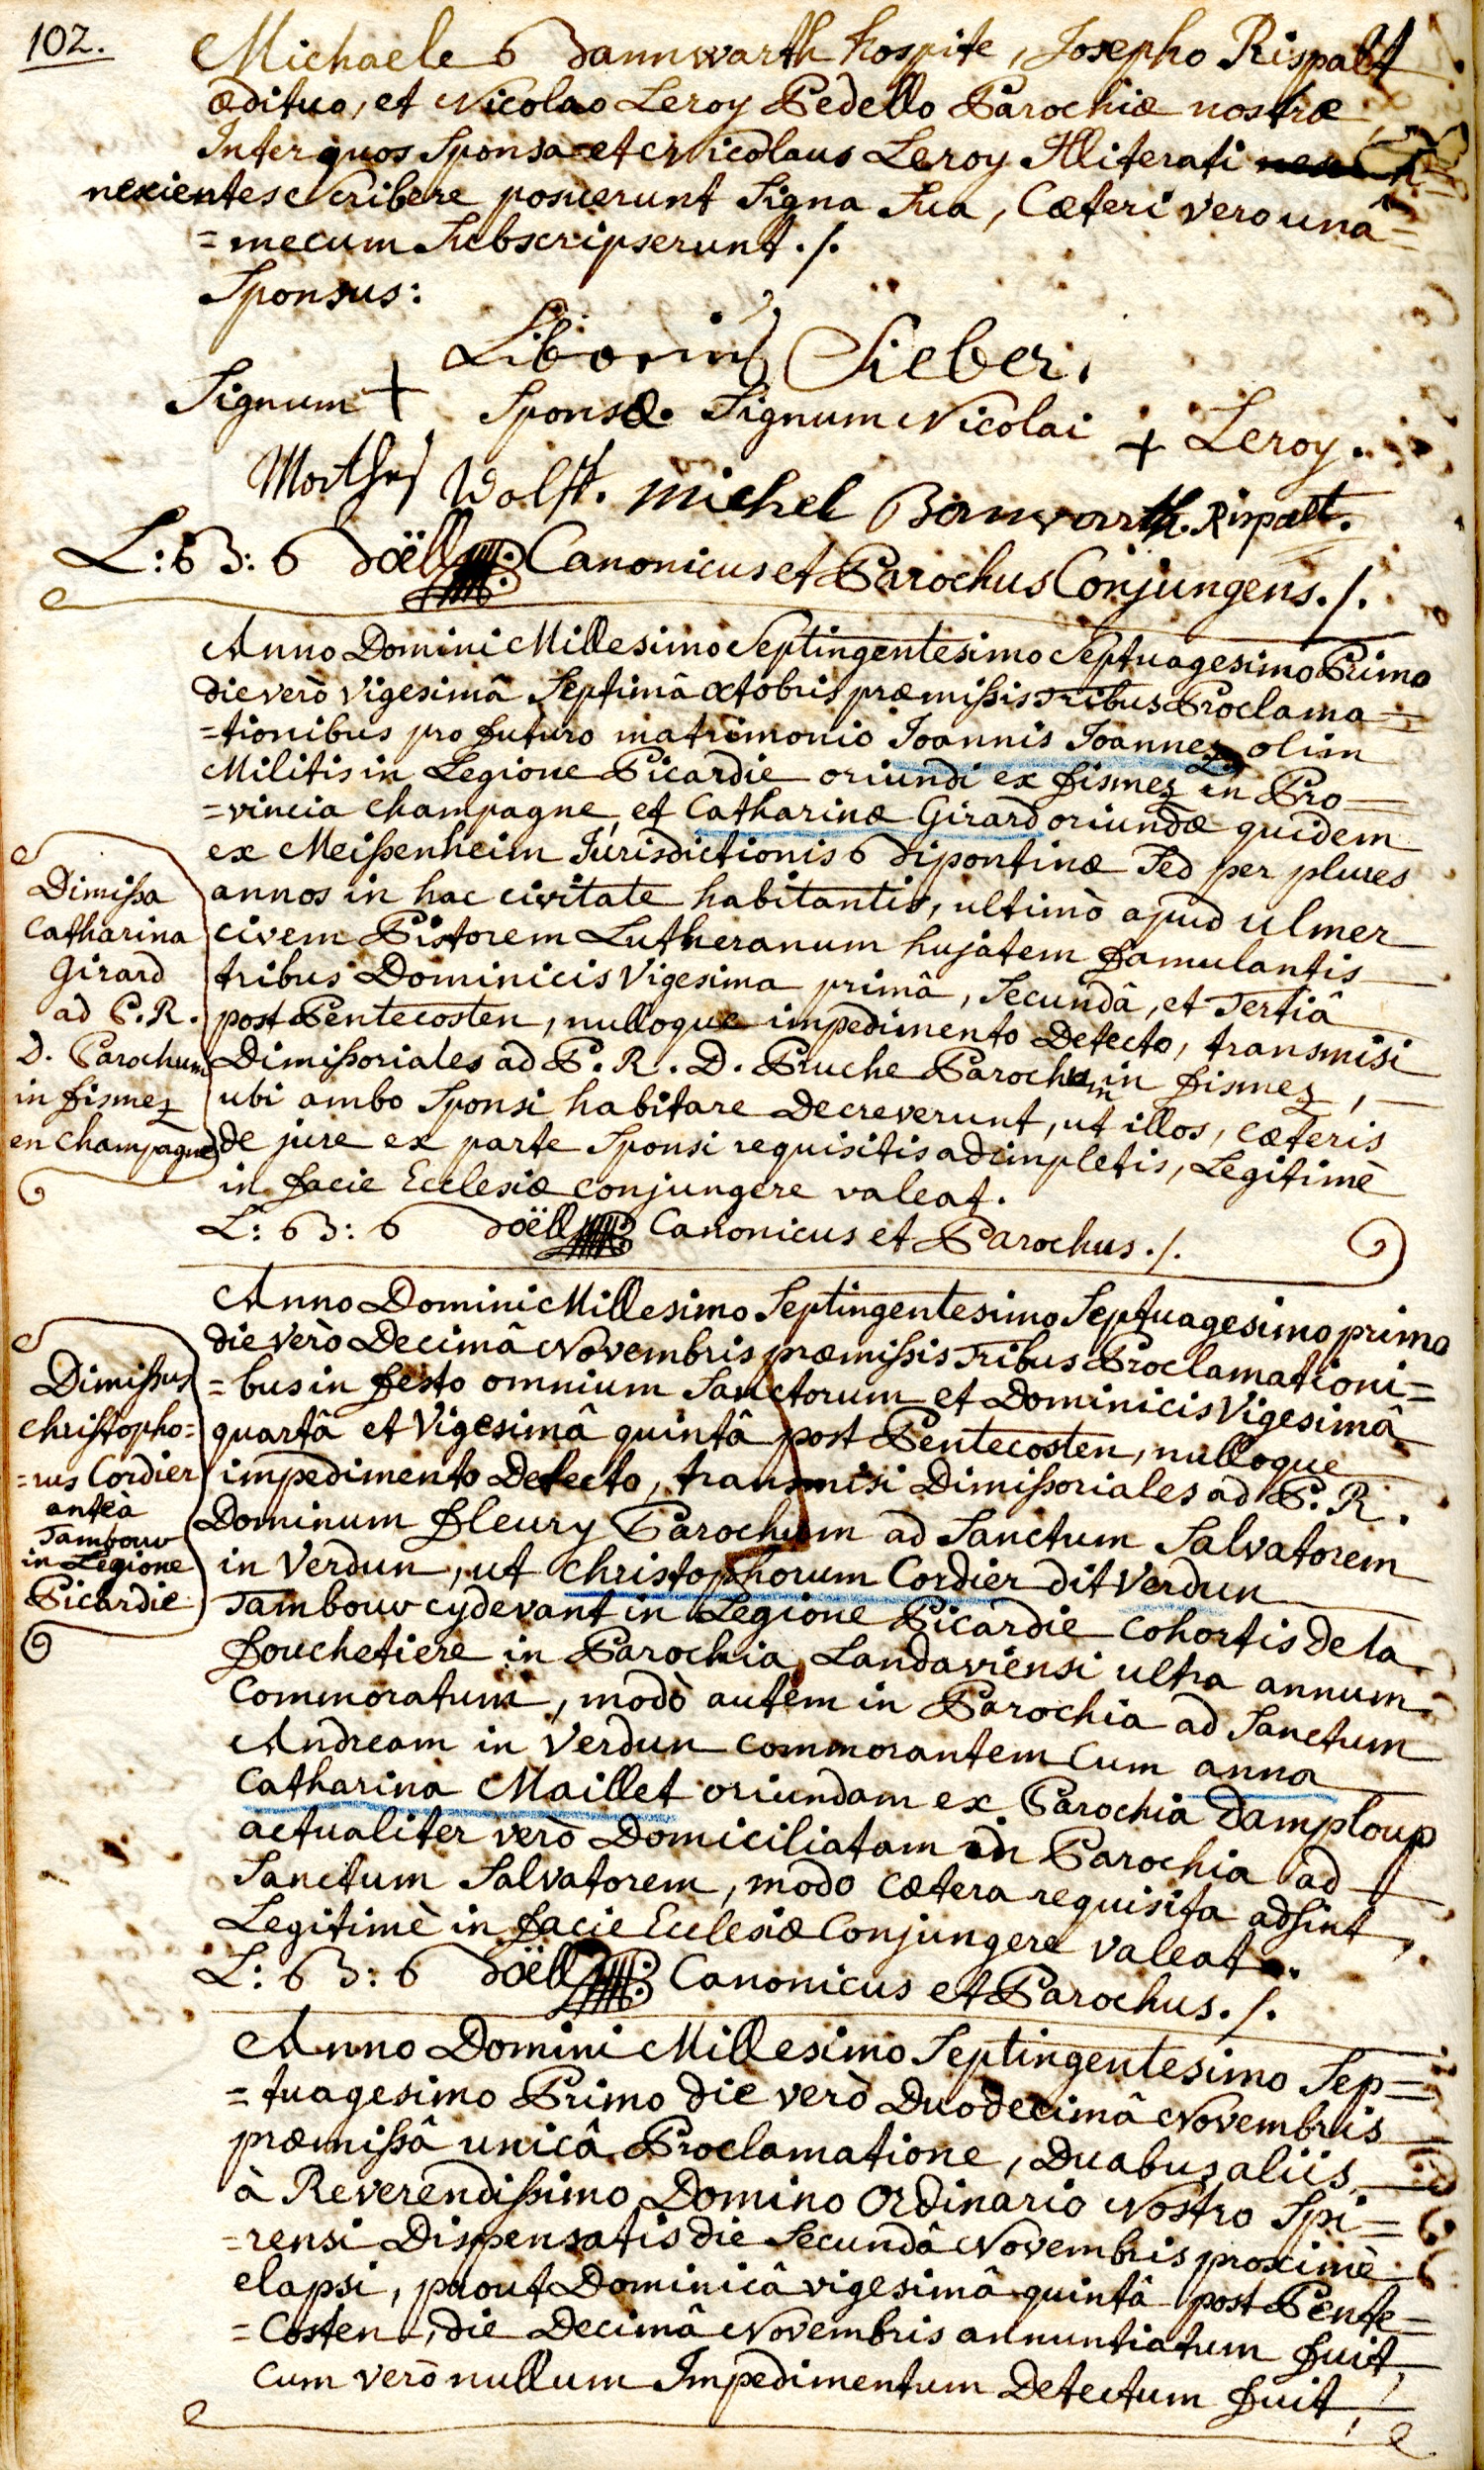 102.
Michaele Bannwarth hospite, Josepho Rispalt
ædituo, et Nicolao Leroy Pedello Parochiæ nostræ,
Inter quos Sponsa et Nicolaus Leroy Illiterati
nescientes Scribere posuerunt Signa Sua, Cæteri vero unâ=
=mecum Subscripserunt./.
Sponsus:
Liborius Sieber.
Signum + Sponsæ. Signum Nicolai + Leroy.
Wolff. Michel Banwarth. Rispalt.
L: B: Doëll Canonicus et Parochus Conjungens./.
Anno Domini Millesimo Septingentesimo Septuagesimo Primo
die verò Vigesimâ Septimâ octobris præmissis Tribus Proclama=
=tionibus pro futuro matrimonio Joannis Joannez olim
Militis in Legione Picardie oriundi ex fismez in Pro=
=vincia Champagne, et Catharinæ Girard oriundæ quidem
ex Meissenheim Jurisdictionis Bipontinæ Sed per plures
annos in hac civitate habitantis, ultimò apud Ulmer
civem Pistorem Lutheranum hujatem famulantis
tribus Dominicis Vigesima primâ, Secundâ, et Tertiâ
post Pentecosten, nulloque impedimento Detecto, transmisi
Dimissoriales ad P. R. D. Pruche Parochum in fismez,
ubi ambo Sponsi habitare Decreverunt, ut illos, cæteris
de jure ex parte Sponsi requisitis adimpletis, Legitimè
in facie Ecclesiæ conjungere valeat.
L: B: Doëll Canonicus et Parochus./.
Dimissa
Catharina
Girard
ad P. R.
D. Parochum
in fismez
en Champagne
Anno Domini Millesimo Septingentesimo Septuagesimo primo
die verò Decimâ Novembris præmissis Tribus Proclamationi=
=bus in festo omnium Sanctorum et Dominicis Vigesimâ
quartâ et Vigesimâ quintâ post Pentecosten, nulloque
impedimento Detecto, transmisi Dimissoriales ad P. R.
Dominum fleury Parochum ad Sanctum Salvatorem
in Verdun, ut Christophorum Cordier dit Verdun
Tambour cydevant in Legione Picardie Cohortis de la
fouchetiere in Parochia Landaviensi ultra annum
Commoratum, modò autem in Parochia ad Sanctum
Andream in Verdun commorantem cum anna
Catharina Maillet oriundam ex Parochia Damploup
actualiter verò Domiciliatam in Parochia ad
Sanctum Salvatorem, modo cætera requisita adsint,
Legitimè in facie Ecclesiæ Conjungere valeat.
L: B: Doëll Canonicus et Parochus./.
Dimissus
Christopho=
=rus Cordier
anteà
Tambour
in Legione
Picardie
Anno Domini Millesimo Septingentesimo Sep=
=tuagesimo Primo die verò Duodecimâ Novembris
præmissâ unicâ Proclamatione, Duabus aliis
à Reverendissimo Domino Ordinario Nostro Spi=
=rensi Dispensatis die Secundâ Novembris proximè
elapsi, prout Dominicâ vigesimâ quintâ post Pente=
=costen, die Decimâ Novembris annuntiatum fuit,
cum verò nullum Impedimentum Detectum fuit,